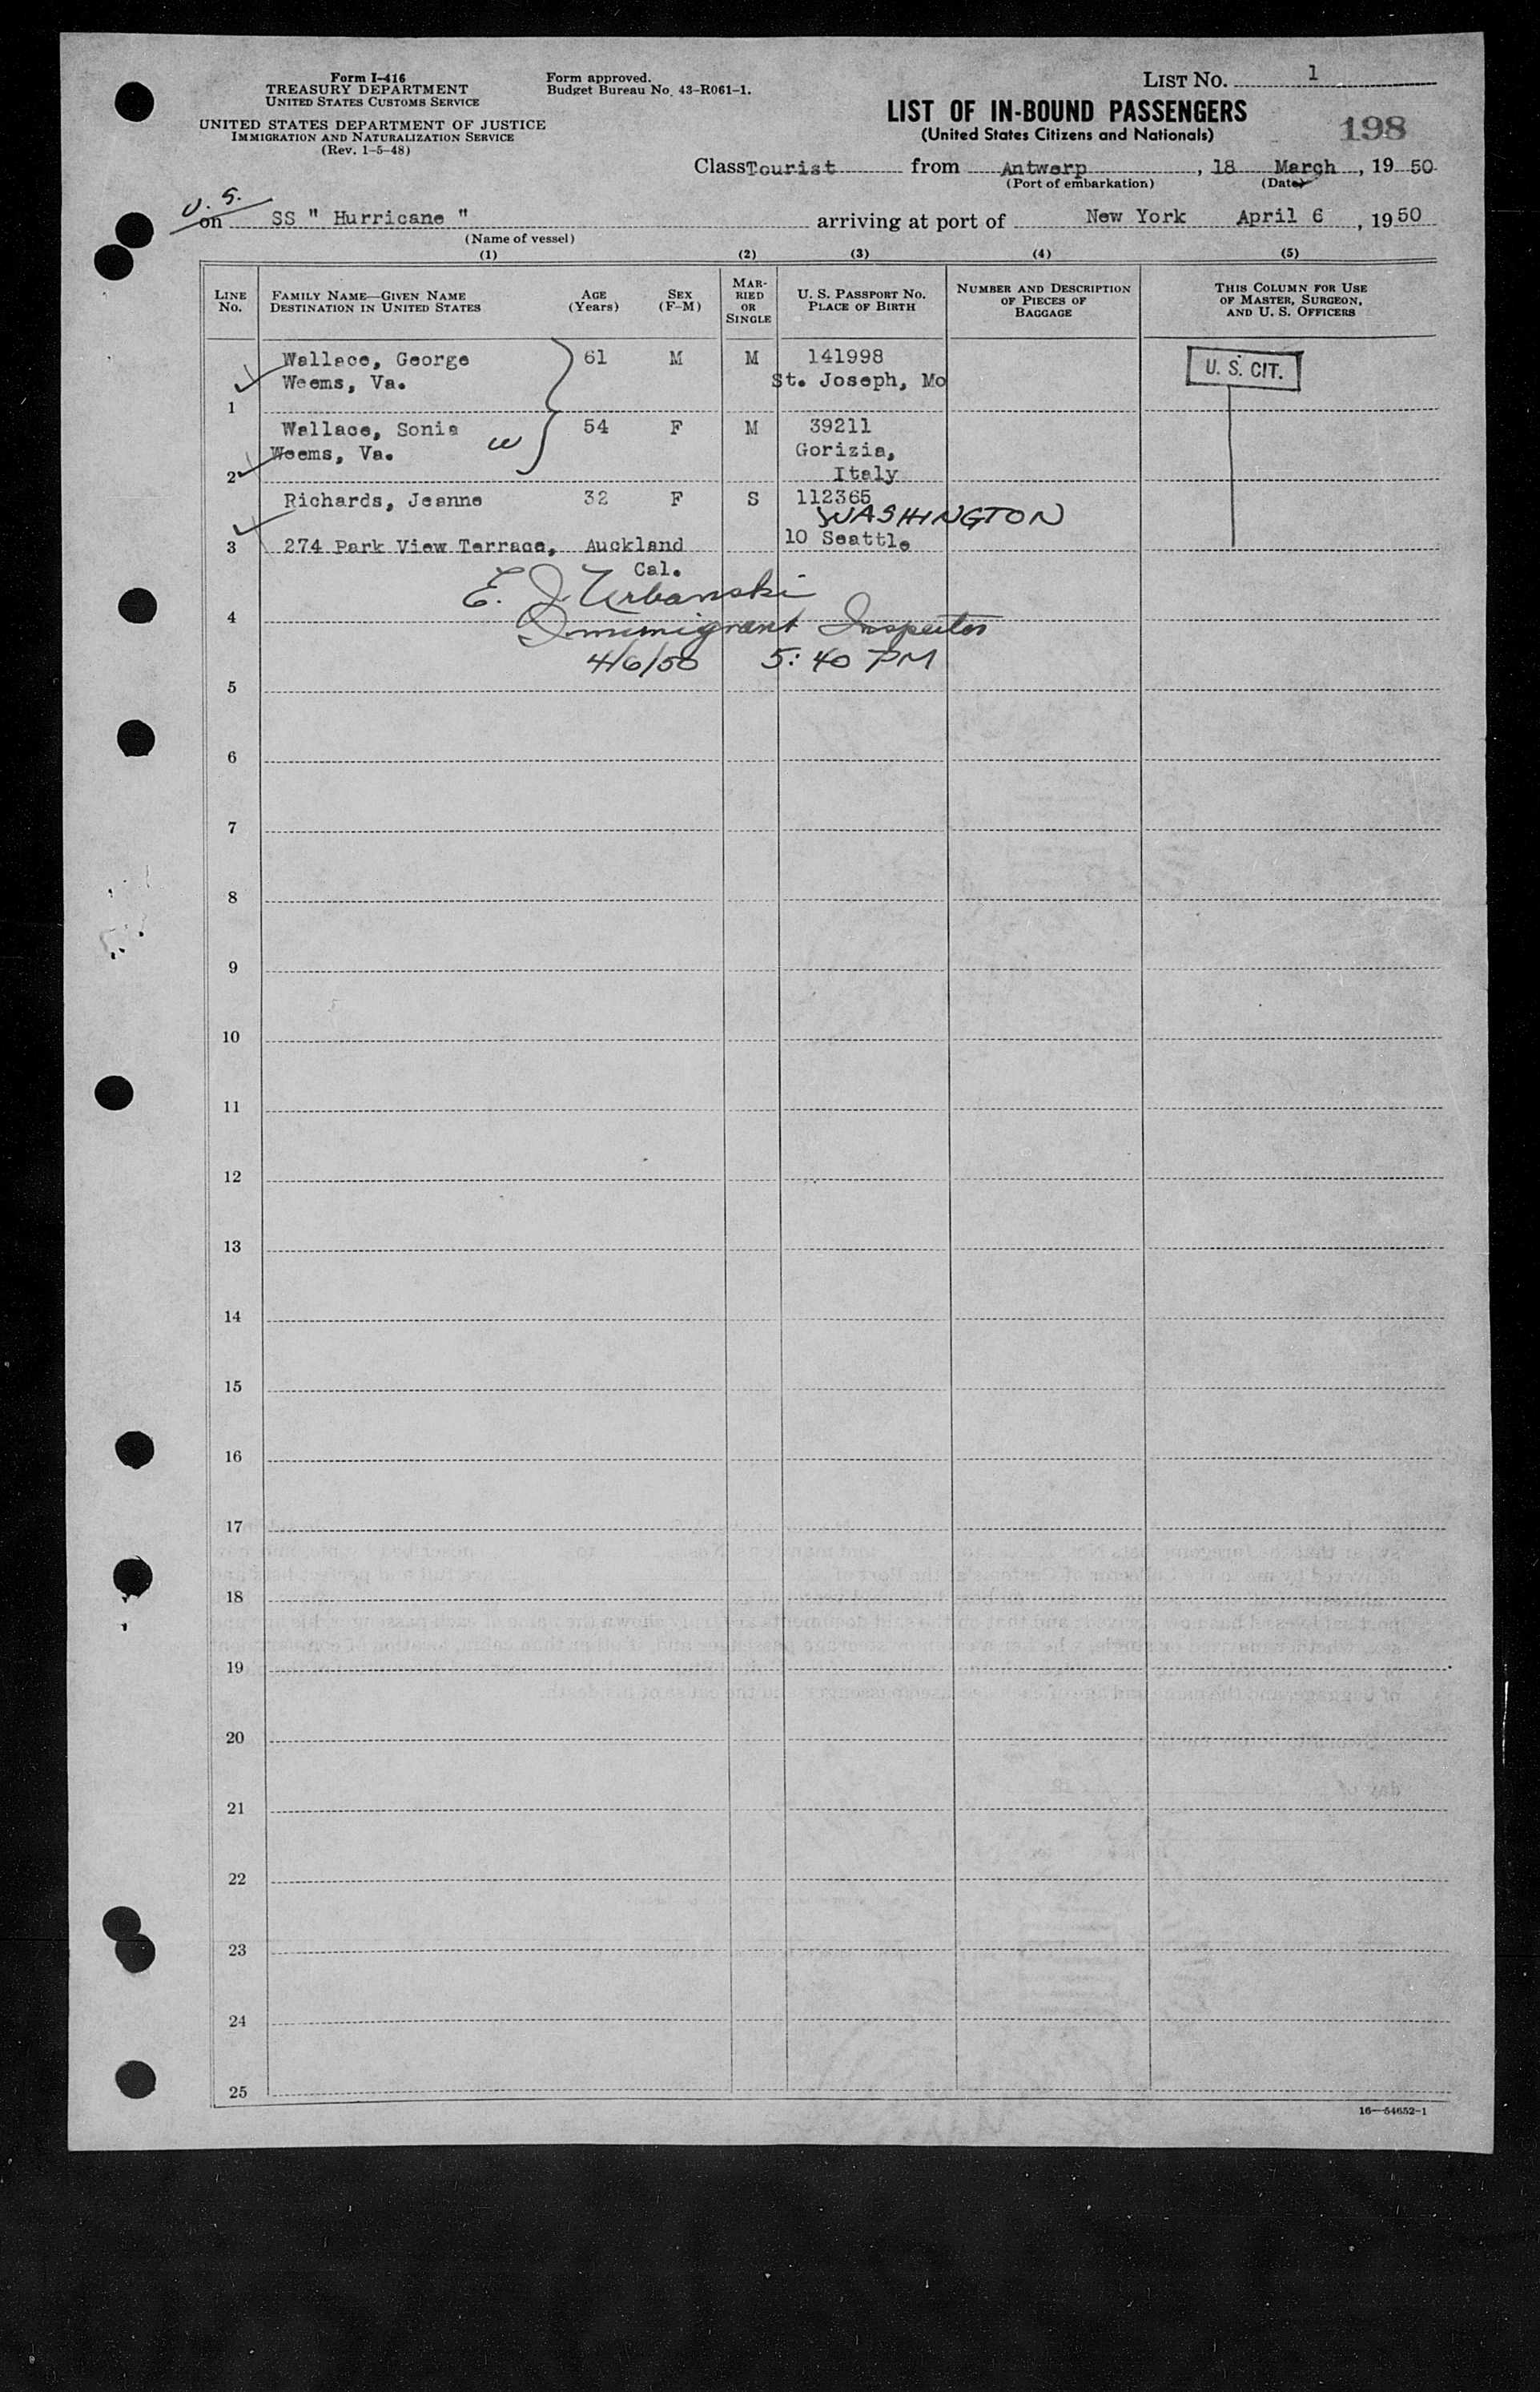 Form I-416
TREASURY DEPARTMENT
UNITED STATES CUSTOMS SERVICE
UNITED STATES DEPARTMENT OF JUSTICE
IMMIGRATION AND NATURALIZATION SERVICE
(Rev. 1-5-48)
Form approved.
Budget Bureau No. 43-R061-1.
LIST No. 1
LIST OF IN-BOUND PASSENGERS
(United States Citizens and Nationals)
198
Class Tourist from Antwerp, 18 March, 19 50
(Port of embarkation) (Date)
U. S.
on SS " Hurricane " arriving at port of New York April 6, 19 50
(Name of vessel)
(1) (2) (3) (4) (5)
LINE No.
FAMILY NAME—GIVEN NAME
DESTINATION IN UNITED STATES
AGE (Years)
SEX (F-M)
MARRIED OR SINGLE
U. S. PASSPORT No.
PLACE OF BIRTH
NUMBER AND DESCRIPTION OF PIECES OF BAGGAGE
THIS COLUMN FOR USE OF MASTER, SURGEON, AND U. S. OFFICERS
Wallace, George 61 M M 141998
Weems, Va. St. Joseph, Mo
U. S. CIT.
1
Wallace, Sonia W 54 F M 39211
Weems, Va. Gorizia,
2 Italy
Richards, Jeanne 32 F S 112365
WASHINGTON
3 274 Park View Terrace, Auckland 10 Seattle
Cal.
E. J. Urbanski
4
Immigrant Inspector
4/6/50 5:40 PM
5
6
7
8
9
10
11
12
13
14
15
16
17
18
19
20
21
22
23
24
25
16—54652-1